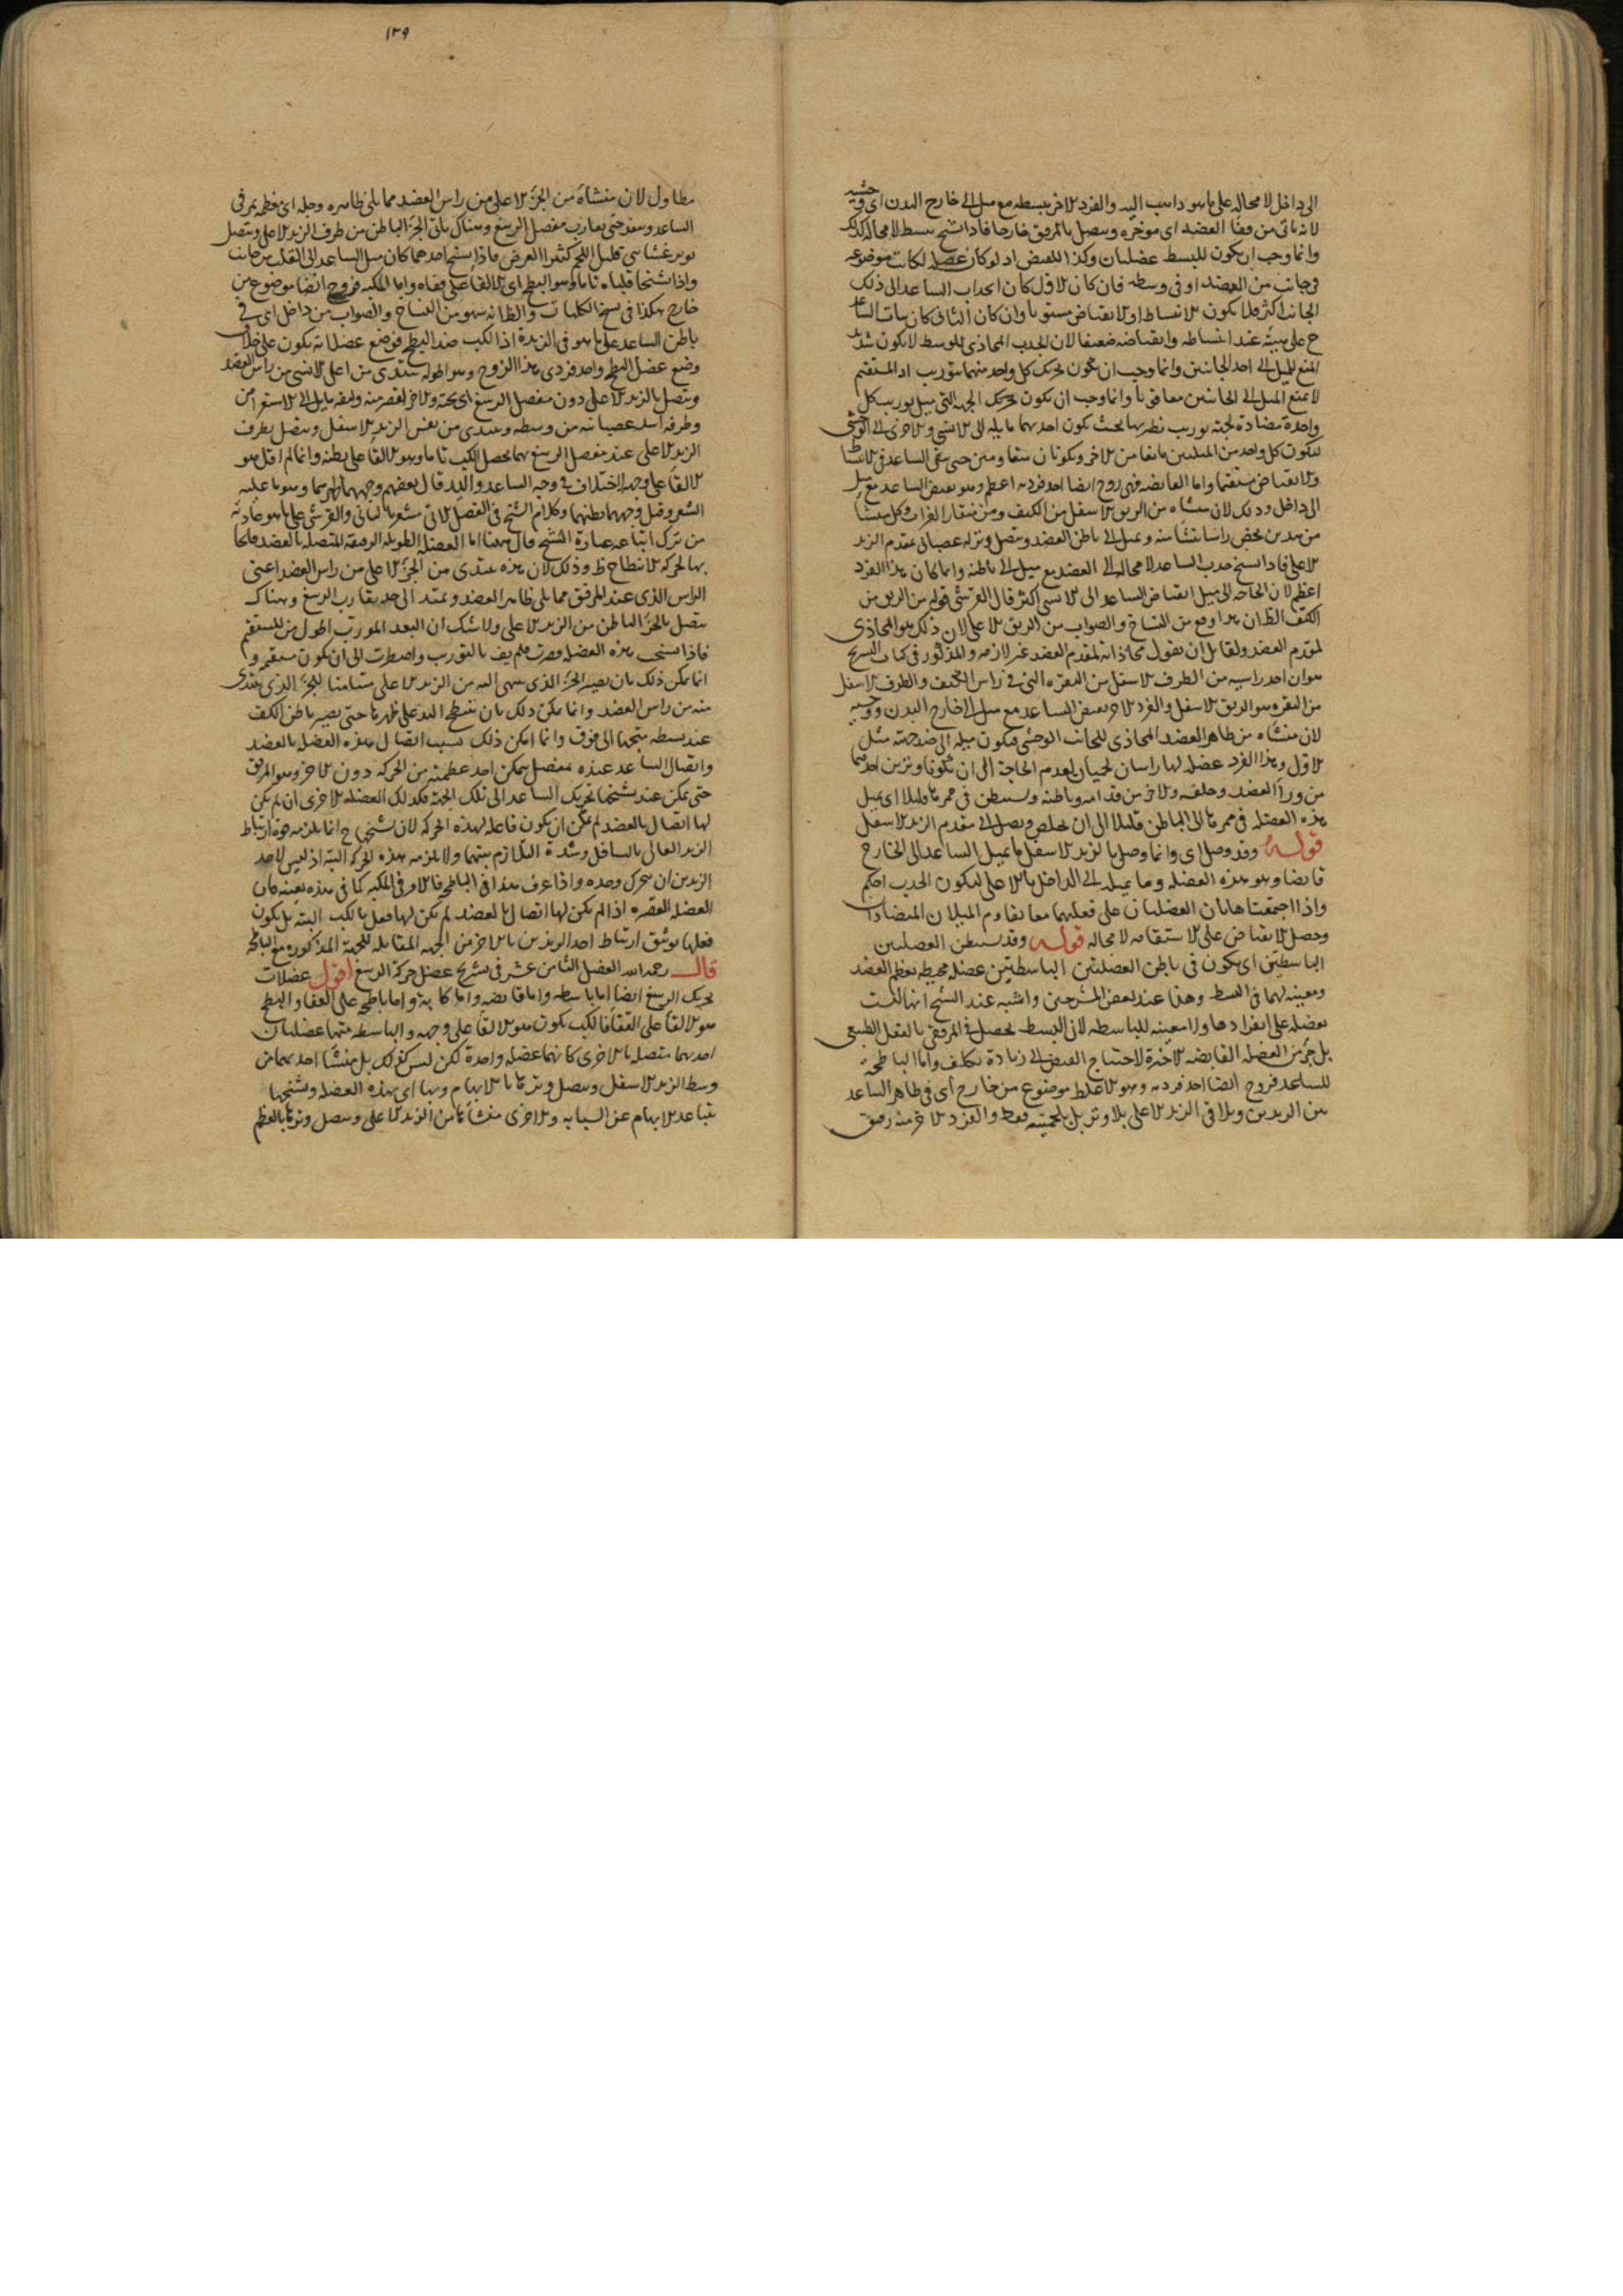 الى داخل لا محاله على ما هو داب اليد والفرد الاخر يبسطه مع ميل الى خارج البدن اى وحشيه
لانه ياتى من قفا العضد اى موخره ويتصل بالمرفق خارجا فاذا تشنج بسط لا محاله كذلك
وانما وجب ان يكون للبسط عضلتان وكذا للقبض اذ لو كان عضله لكانت موضوعه
فى جانب من العضد او فى وسطه فان كان الاول كان انجذاب الساعد الى ذلك
الجانب اكثر فلا يكون الانبساط او الانقباض مستويا وان كان الثانى كان ثبات الساعد
ح على هيئه عند انبساطه وانقباضه ضعيفا لان الجذب المحاذى للوسط لا يكون شديد
المنع للميل الى احد الجانبين وانما وجب ان يكون تحريك كل واحد منهما بتوريب اذ المستقيم
لا يمنع الميل الى الجانبين معا قويا وانما وجب ان يكون تحريك الجهه التى يميل توريب كل
واحدة مضادة لجهه توريب نظيرتها بحيث يكون احديهما مايله الى الانسى والاخرى الى الوحشى
ليكون كل واحد من الميلين مانعا من الاخر ويكونان متقاومين حتى يبقى الساعد فى الانبساط
والانقباض مستقيما واما القابضه فهى زوج ايضا احد فرديه اعظم وهو يقبض الساعد مع ميل
الى داخل وذلك لان منشاه من الزيق الاسفل من الكتف ومن منقار الغراب وكل منشا
من هذين يخص راسا منشا منه ويميل الى باطن العضد ويتصل وتر له عصبانى بمقدم الزند
الاعلى فاذا تشنج جذب الساعد لا محاله الى العضد مع ميل الى باطنه وانما كان هذا الفرد
اعظم لان الحاجه الى ميل انقباض الساعد الى الانسى اكثر قال القرشى قوله من الزيق من
الكتف الظان هذا وقع من النساخ والصواب من الزيق الاعلى لان ذلك هو المحاذى
لمقدم العضد ولقايل ان يقول محاذاته لمقدم العضد غير لازمه والمذكور فى كتاب التشريح
هو ان احد راسيه من الطرف الاسفل من النقره التى فى راس الكتف والطرف الاسفل
من النقره هو الزيق الاسفل والفرد الاخر يقبض الساعد مع ميل الى خارج البدن ووحشيه
لان منشاه من ظاهر العضد المحاذى للجانب الوحشى فيكون ميله الى ضد جهته مثل
الاول وهذا الفرد عضله لها راسان لحميان لعدم الحاجة الى ان يكونا وترين احدهما
من وراء العضد وخلفه والاخر من قدامه وباطنه وتستبطن فى ممرها قليلا اى يميل
هذه العضله فى ممرها الى الباطن قليلا الى ان تخلص وتصل الى مقدم الزند الاسفل
قوله وقد وصل اى وانما وصل بالزند الاسفل ما يميل الساعد الى الخارج
قابضا وهو هذه العضله وما يميله الى الداخل بالاعلى ليكون الجذب احكم
واذا اجتمعتا هاتان العضلتان على فعليهما معا تقاوم الميلان المتضادان
وحصل الانقباض على الاستقامه لا محاله قوله وقد يستبطن العضلتين
الباسطتين اى يكون فى باطن العضلتين الباسطتين عضله محيطه بعظم العضد
ومعينه لهما فى البسط وهذا عند بعض المشرحين واشبه عند الشيخ انها ليست
بعضله على انفرادها ولا معينه للباسطه لان البسط يحصل فى المرفق بالثقل الطبيعى
بل جزء من العضله القابضه الاخيرة لاحتياج القبض الى زيادة تكلف واما الباطحه
للساعد فزوج ايضا احد فرديه وهو الاغلظ موضوع من خارج اى فى ظاهر الساعد
بين الزندين ويلاقى الزند الاعلى بلا وتر بل بلحميته فقط والفرد الاخر منه رقيق
١٣٩
متطاول لان منشاه من الجزء الاعلى من راس العضد مما يلى ظاهره وجله اى معظمه يمر فى
الساعد وينفذ حتى يقارب مفصل الرسغ وهناك ياتى الجزء الباطن من طرف الزند الاعلى ويتصل
بوتر غشائى قليل اللحم كثير العرض فاذا تشنج احدهما كان ميل الساعد الى القلب من جانب
واذا تشنجا قلباه تاما وهو البطح اى الالقا على قفاه واما المكبه فزوج ايضا موضوع من
خارج هكذا فى نسخ الكليات والظانه سهو من النساخ والصواب من داخل اى فى
باطن الساعد على ما هو فى الزبدة اذ الكب ضد البطح فوضع عضلاته يكون على خلاف
وضع عضل البطح واحد فردى هذا الزوج وهو اطوله يبتدى من اعلى الانسى من راس العضد
ويتصل بالزند الاعلى دون مفصل الرسغ اى تحته والاخر اقصر منه وليفه مايل الى الاستعراض
وطرفه اشد عصبانيه من وسطه ويبتدى من نفس الزند الاسفل ويتصل بطرف
الزند الاعلى عند مفصل الرسغ بهما يحصل الكب تاما وهو الالقا على بطنه وانما لم اقل هو
الالقا على وجهه لاختلاف فى وجه الساعد واليد قال بعضهم وجههما ظهرهما وهو ما عليه
الشعر وقيل وجههما بطنهما وكلام الشيخ فى الفصل الاتى مشعر بالثانى والقرشى على ما هو عادته
من ترك اتباعه عبارة الشيخ قال ههنا اما العضله الطويله الرقيقه المتصله بالعضد فلحا
بها لحركه الانبطاح ظ وذلك لان هذه يبتدى من الجزء الاعلى من راس العضد اعنى
الراس الذى عند المرفق مما يلى ظاهر العضد ويمتد الى حد يقارب الرسغ وهناك
يتصل بالجزء الباطن من الزند الاعلى ولا شك ان البعد المورب اطول من المستقيم
فاذا تشنجت هذه العضله قصرت فلم يف بالتوريب واضطرت الى ان يكون مستقيمه و
انما يمكن ذلك بان يصير الجزء الذى ينتهى اليه من الزند الاعلى مسامتا للجزء الذى يبتدى
منه من راس العضد وانما يمكن ذلك بان ينبطح اليد على ظهرها حتى يصير باطن الكف
عند بسطه متجها الى فوق وانما امكن ذلك بسبب اتصال هذه العضله بالعضد
واتصال الساعد عنده بمفصل يمكن احد عظميه من الحركه دون الاخر وهو المرفق
حتى يمكن عند تشنجها تحريك الساعد الى تلك الجهة فكذلك العضله الاخرى ان لم يكن
لها اتصال بالعضد لم يمكن ان يكون فاعله لهذه الحركه لان تشنجها ح انما يلزمه قوة ارتباط
الزند العالى بالسافل وشدة التلازم بينهما ولا يلزمه هذه الحركه البته اذ ليس لاحد
الزندين ان يتحرك وحده واذا عرف هذا فى الباطحه فالامر فى المكبه كما فى هذه بعينه فان
العضله القصيره اذا لم يكن لها اتصال بالعضد لم يكن لها فعل بالكب البته بل يكون
فعلها توثق ارتباط احد الزندين بالاخر من الجهه المقابله للجهة المذكورة مع الباطحه
قال رحمه الله الفصل الثامن عشر فى تشريح عضل حركة الرسغ اقول عضلات
تحريك الرسغ ايضا اما باسطه واما قابضه واما كابة واما باطحه على القفا والبطح
هو الالقا على القفا فالكب يكون هو الالقا على وجهه والباسطه منها عضلتان
احديهما متصله بالاخرى كانهما عضله واحدة لكن ليس كذلك بل منشا احديهما من
وسط الزند الاسفل ويتصل وترها بالابهام وبها اى بهذه العضله وتشنجها
يتباعد الابهام عن السبابه والاخرى منشاها من الزند الاعلى ويتصل وترها بالعظم